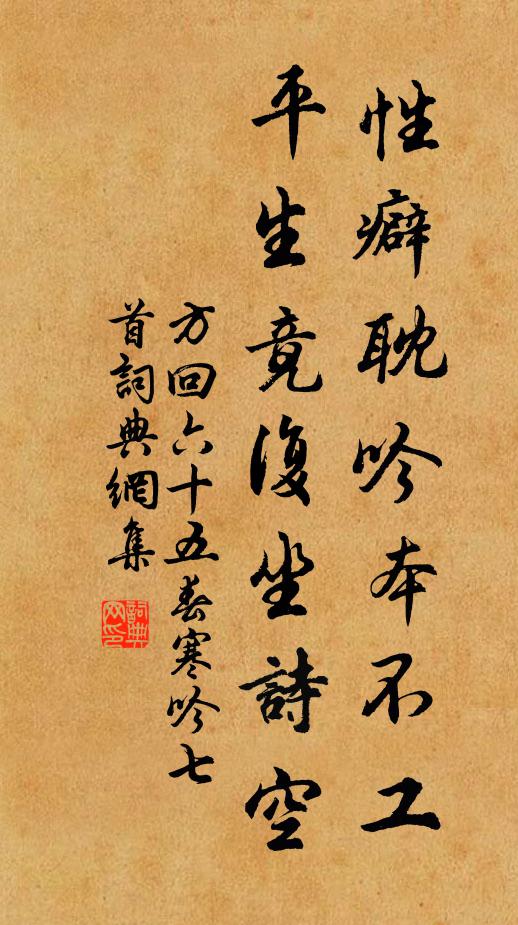 性癖耽吟本不工
平生竟復坐詩空
方回六十五春寒吟七
首詞典網集
詞典
网印